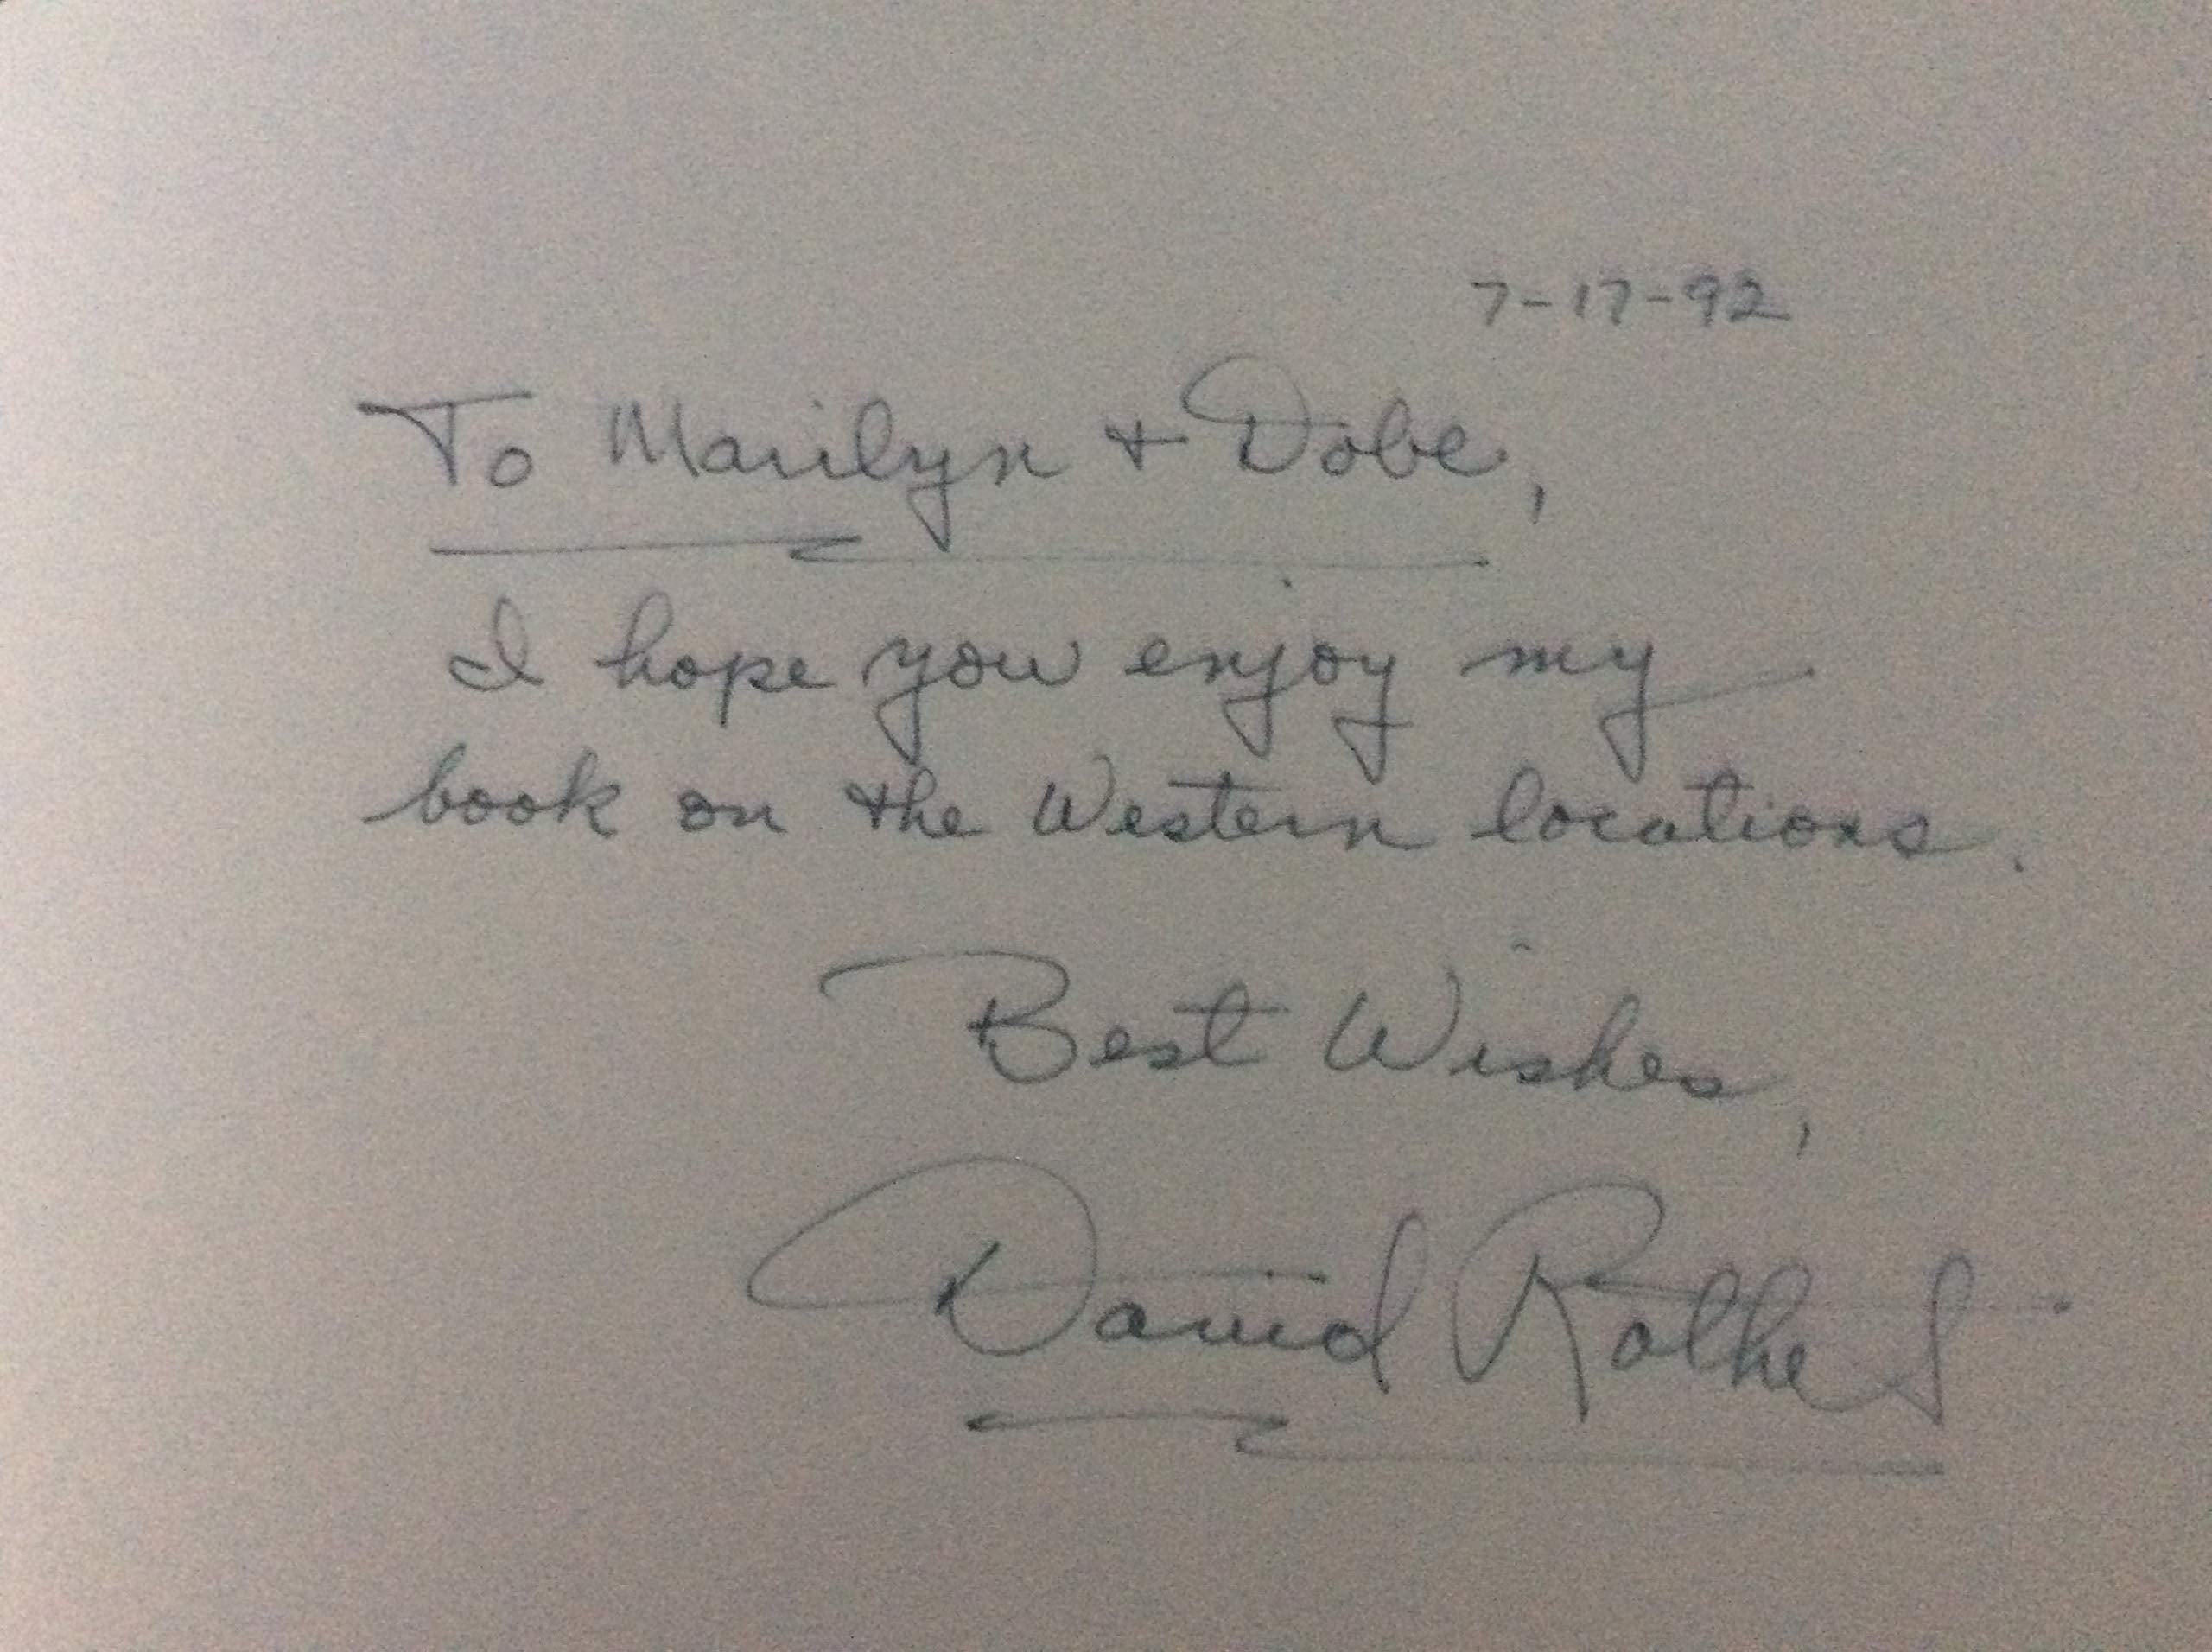 7-17-92
To Marilyn + Dobe,
I hope you enjoy my
book on the Western locations.
Best Wishes,
David Rothel